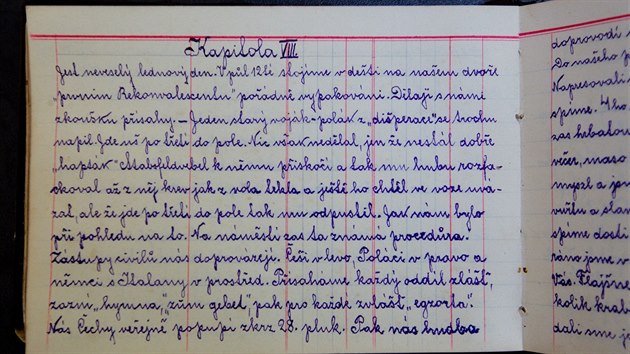 Kapitola VIII.
Jest neveselý lednový den. V půl 12tí stojíme v dešti na našem dvoře
„prvním Rekonvalescentu“ pořádně vypakováni. Dělají s námi
zkoušku přísahy. – Jeden starý voják-polák z „disperaci“ se trochu
napil. Jde už po třetí do pole. Nic však nedělal, jen že nestál dobře
„hapták“. Štabsfeldvébl k němu přiskočí a tak mu hubu rozfa-
ckoval až z něj krev jak z vola tekla a ještě ho chtěl ve voze uvá-
zat, ale že jde po třetí do pole tak mu odpustil. Jak nám bylo
při pohledu na to. Na náměstí zas ta známá procedůra.
Zástupy civilů nás doprovázejí. Češi v levo, Poláci v pravo a
němci s Italany v prostřed. Přísaháme každý oddíl zvlášť,
zazní „hymna“, „zum gebet“, pak pro každé zvlášť „egzorta“.
Nás Čechy veřejně popupí zkrz 28. pluk. Pak nás hudba
doprovodí
Do našeho
Napresovali
spíme.
zas
večer, maso
myzl a
a
spíme dosti
ráno jsme v
Vás.
kolik
dali sme